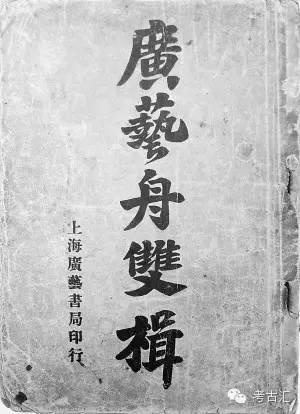 廣藝舟雙楫
上海廣藝書局印行
考古汇